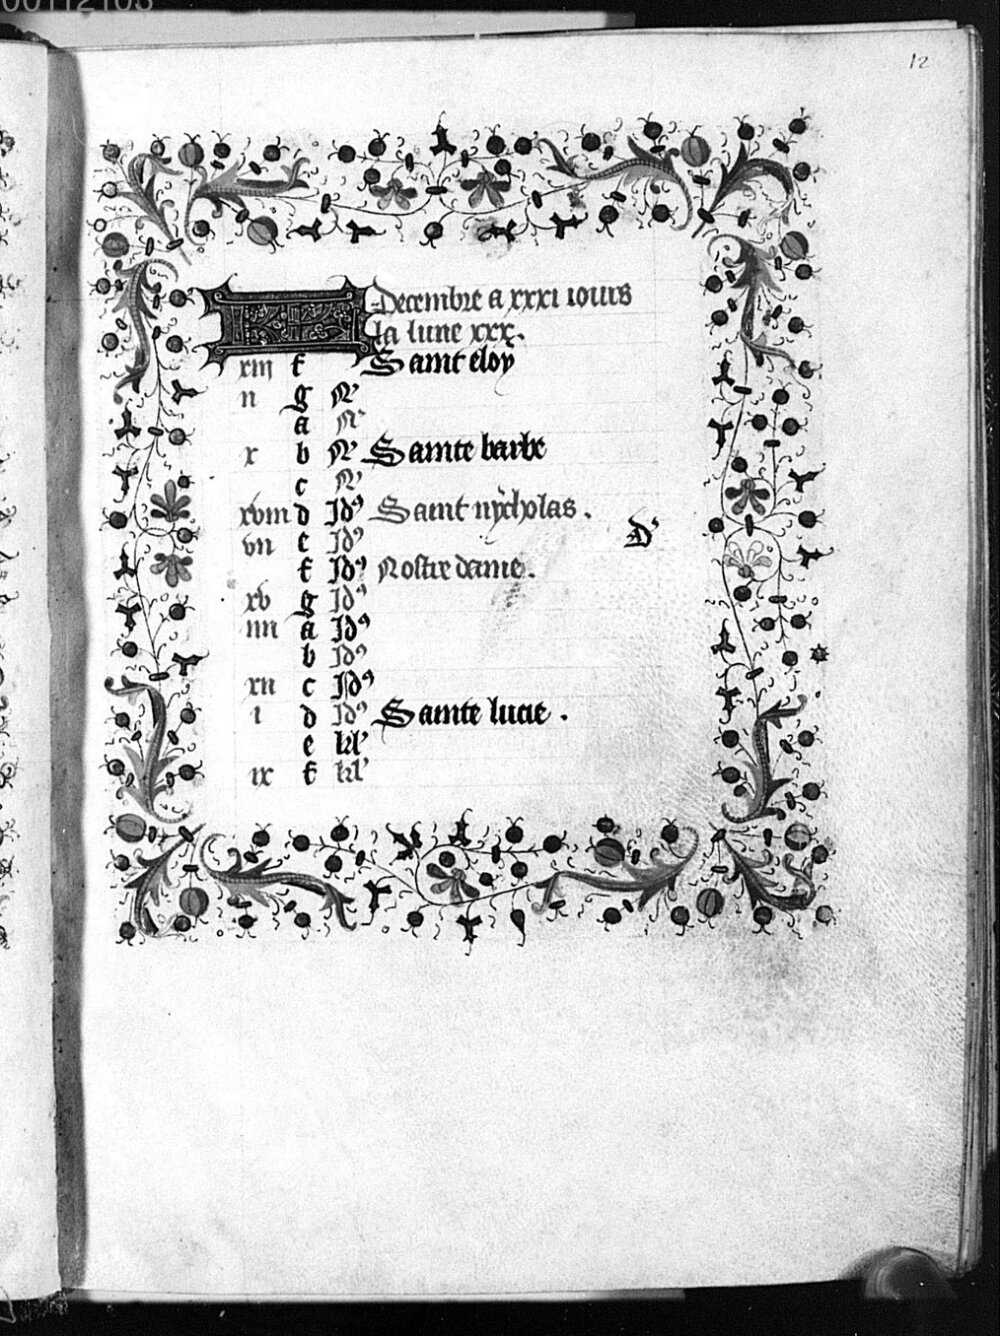 00112103
12
KL Decembre a xxxi iours
la lune xxx.
xiii f Saint eloy
ii g N'
a N'
x b N' Sainte barbe
c N'
xviii d Id' Saint nycholas.
vii e Id' D'
f Id' Nostre dame.
xv g Id'
iiii a Id'
b Id'
xii c Id'
i d Id' Sainte lucie.
e kl'
ix f kl'